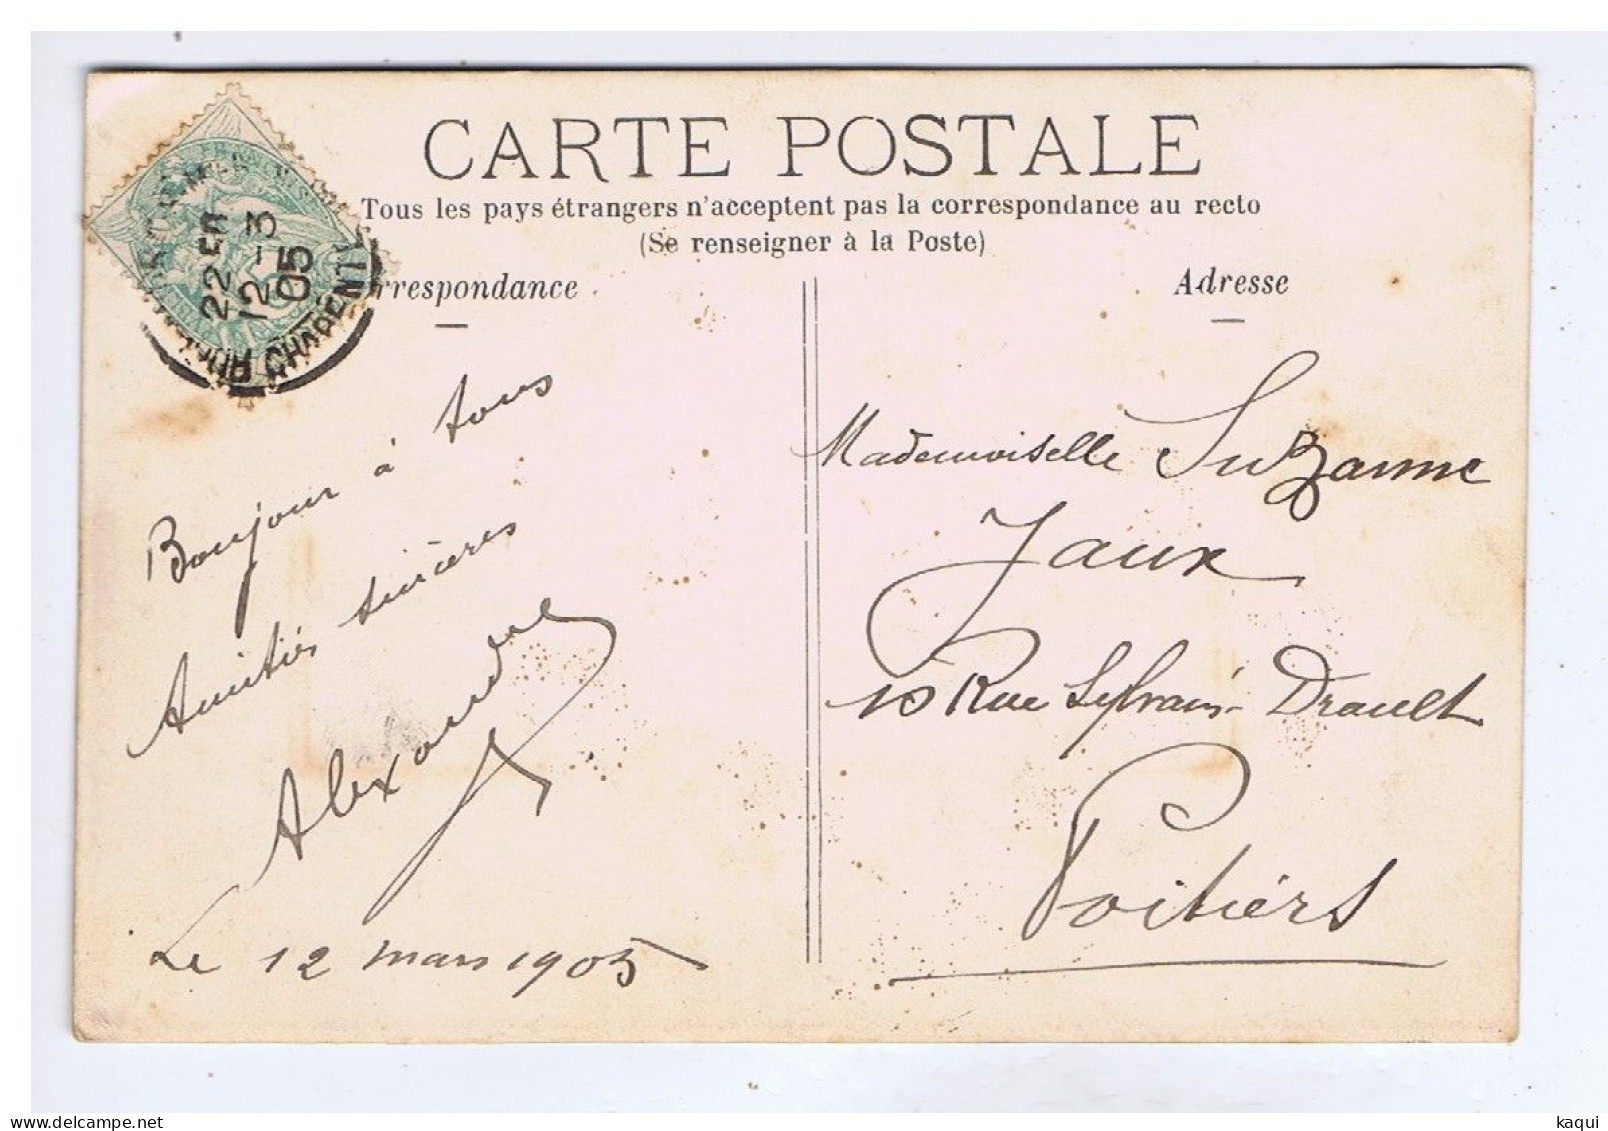 CARTE POSTALE
Tous les pays étrangers n'acceptent pas la correspondance au recto
(Se renseigner à la Poste)
rrespondance
Adresse
22 5
12 - 3
05
Bonjour à tous
Amitiés sincères
Alexandre
Le 12 mars 1905
Mademoiselle Suzanne
Jaux
10 Rue Sylvain Drault
Poitiers
kaqui